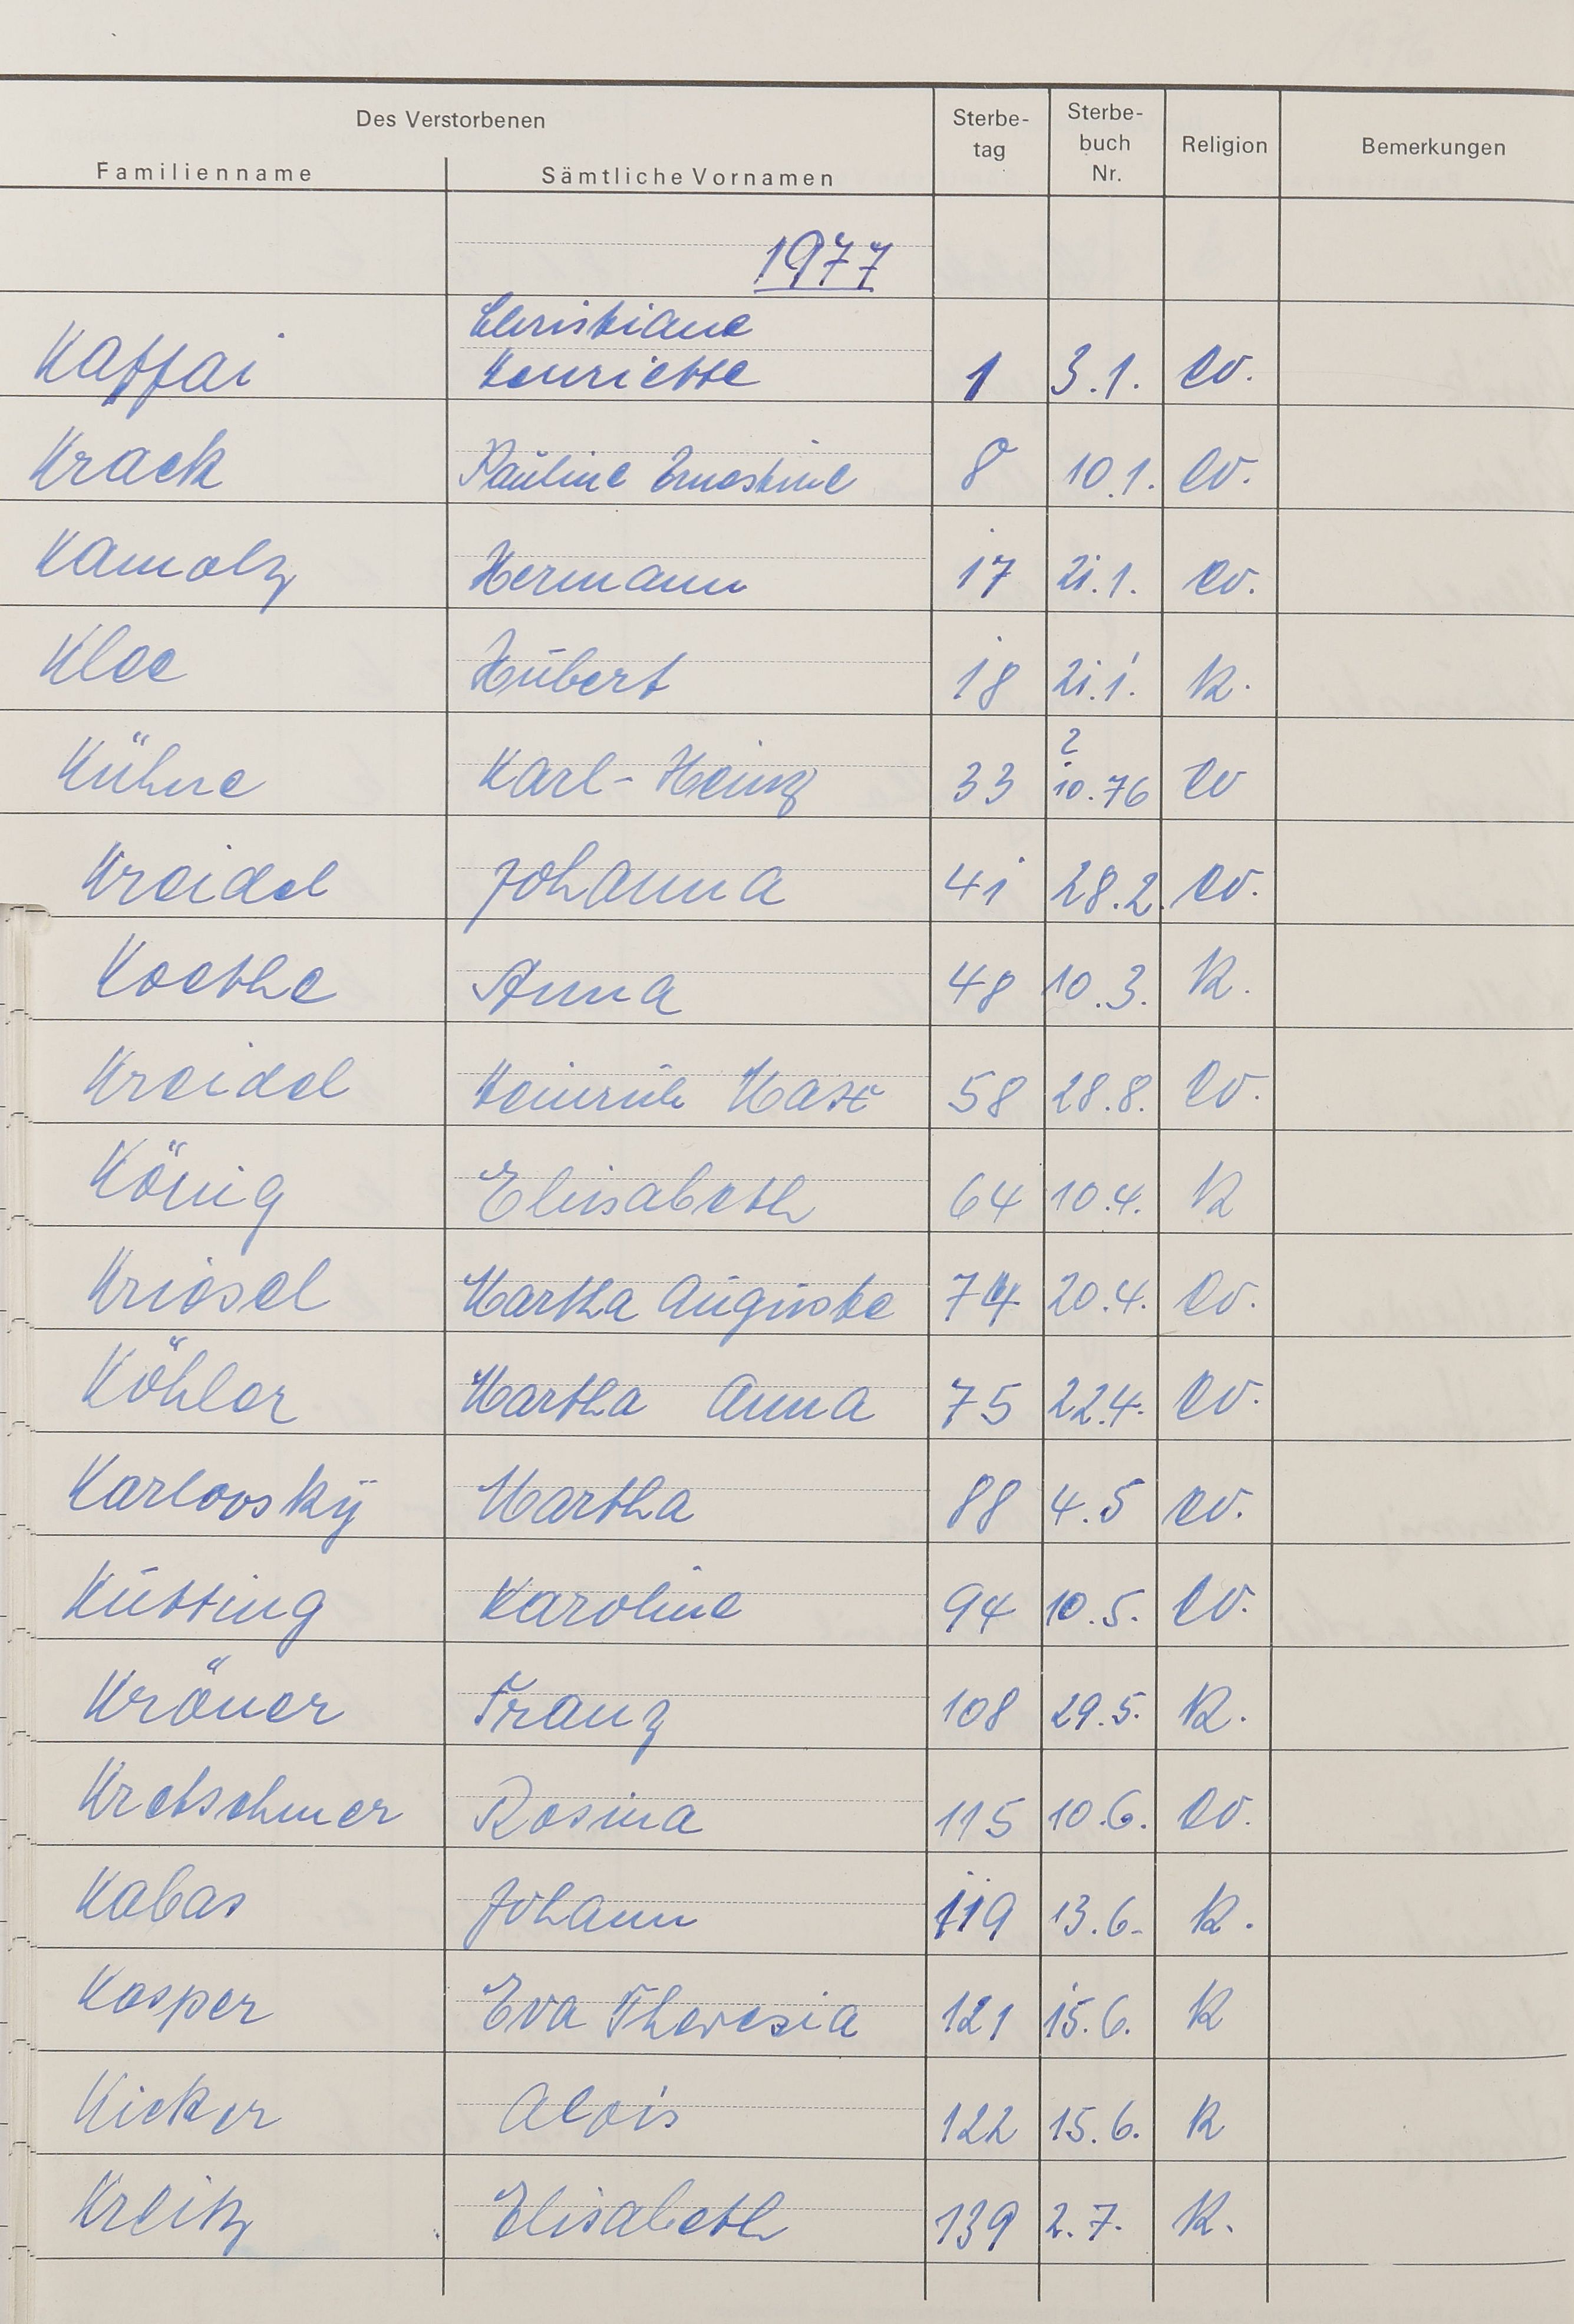 Des Verstorbenen
Familienname Sämtliche Vornamen Sterbe-tag Sterbe-buch Nr. Religion Bemerkungen
1977
Christiane
Kaffai Henriette 1 3.1. ev.
Krack Pauline Ernestine 8 10.1. ev.
Kamolz Hermann 17 21.1. ev.
Klee Hubert 18 21.1. k.
?
Kühne Karl-Heinz 33 10.76 ev
Kreidel Johanna 41 28.2. ev.
Koethe Anna 48 10.3. k.
Kreidel Heinrich Max 58 28.8. ev.
König Elisabeth 64 10.4. k
Kriesel Martha Auguste 74 20.4. ev.
Köhler Martha Anna 75 22.4. ev.
Karlovsky Martha 88 4.5 ev.
Kütting Karoline 94 10.5. ev.
Kröner Franz 108 29.5. k.
Kretschmer Rosina 115 10.6. ev.
Kabas Johann 119 13.6. k.
Kasper Eva Theresia 121 15.6. k
Kicker Alois 122 15.6. k
Kreitz Elisabeth 139 2.7. k.